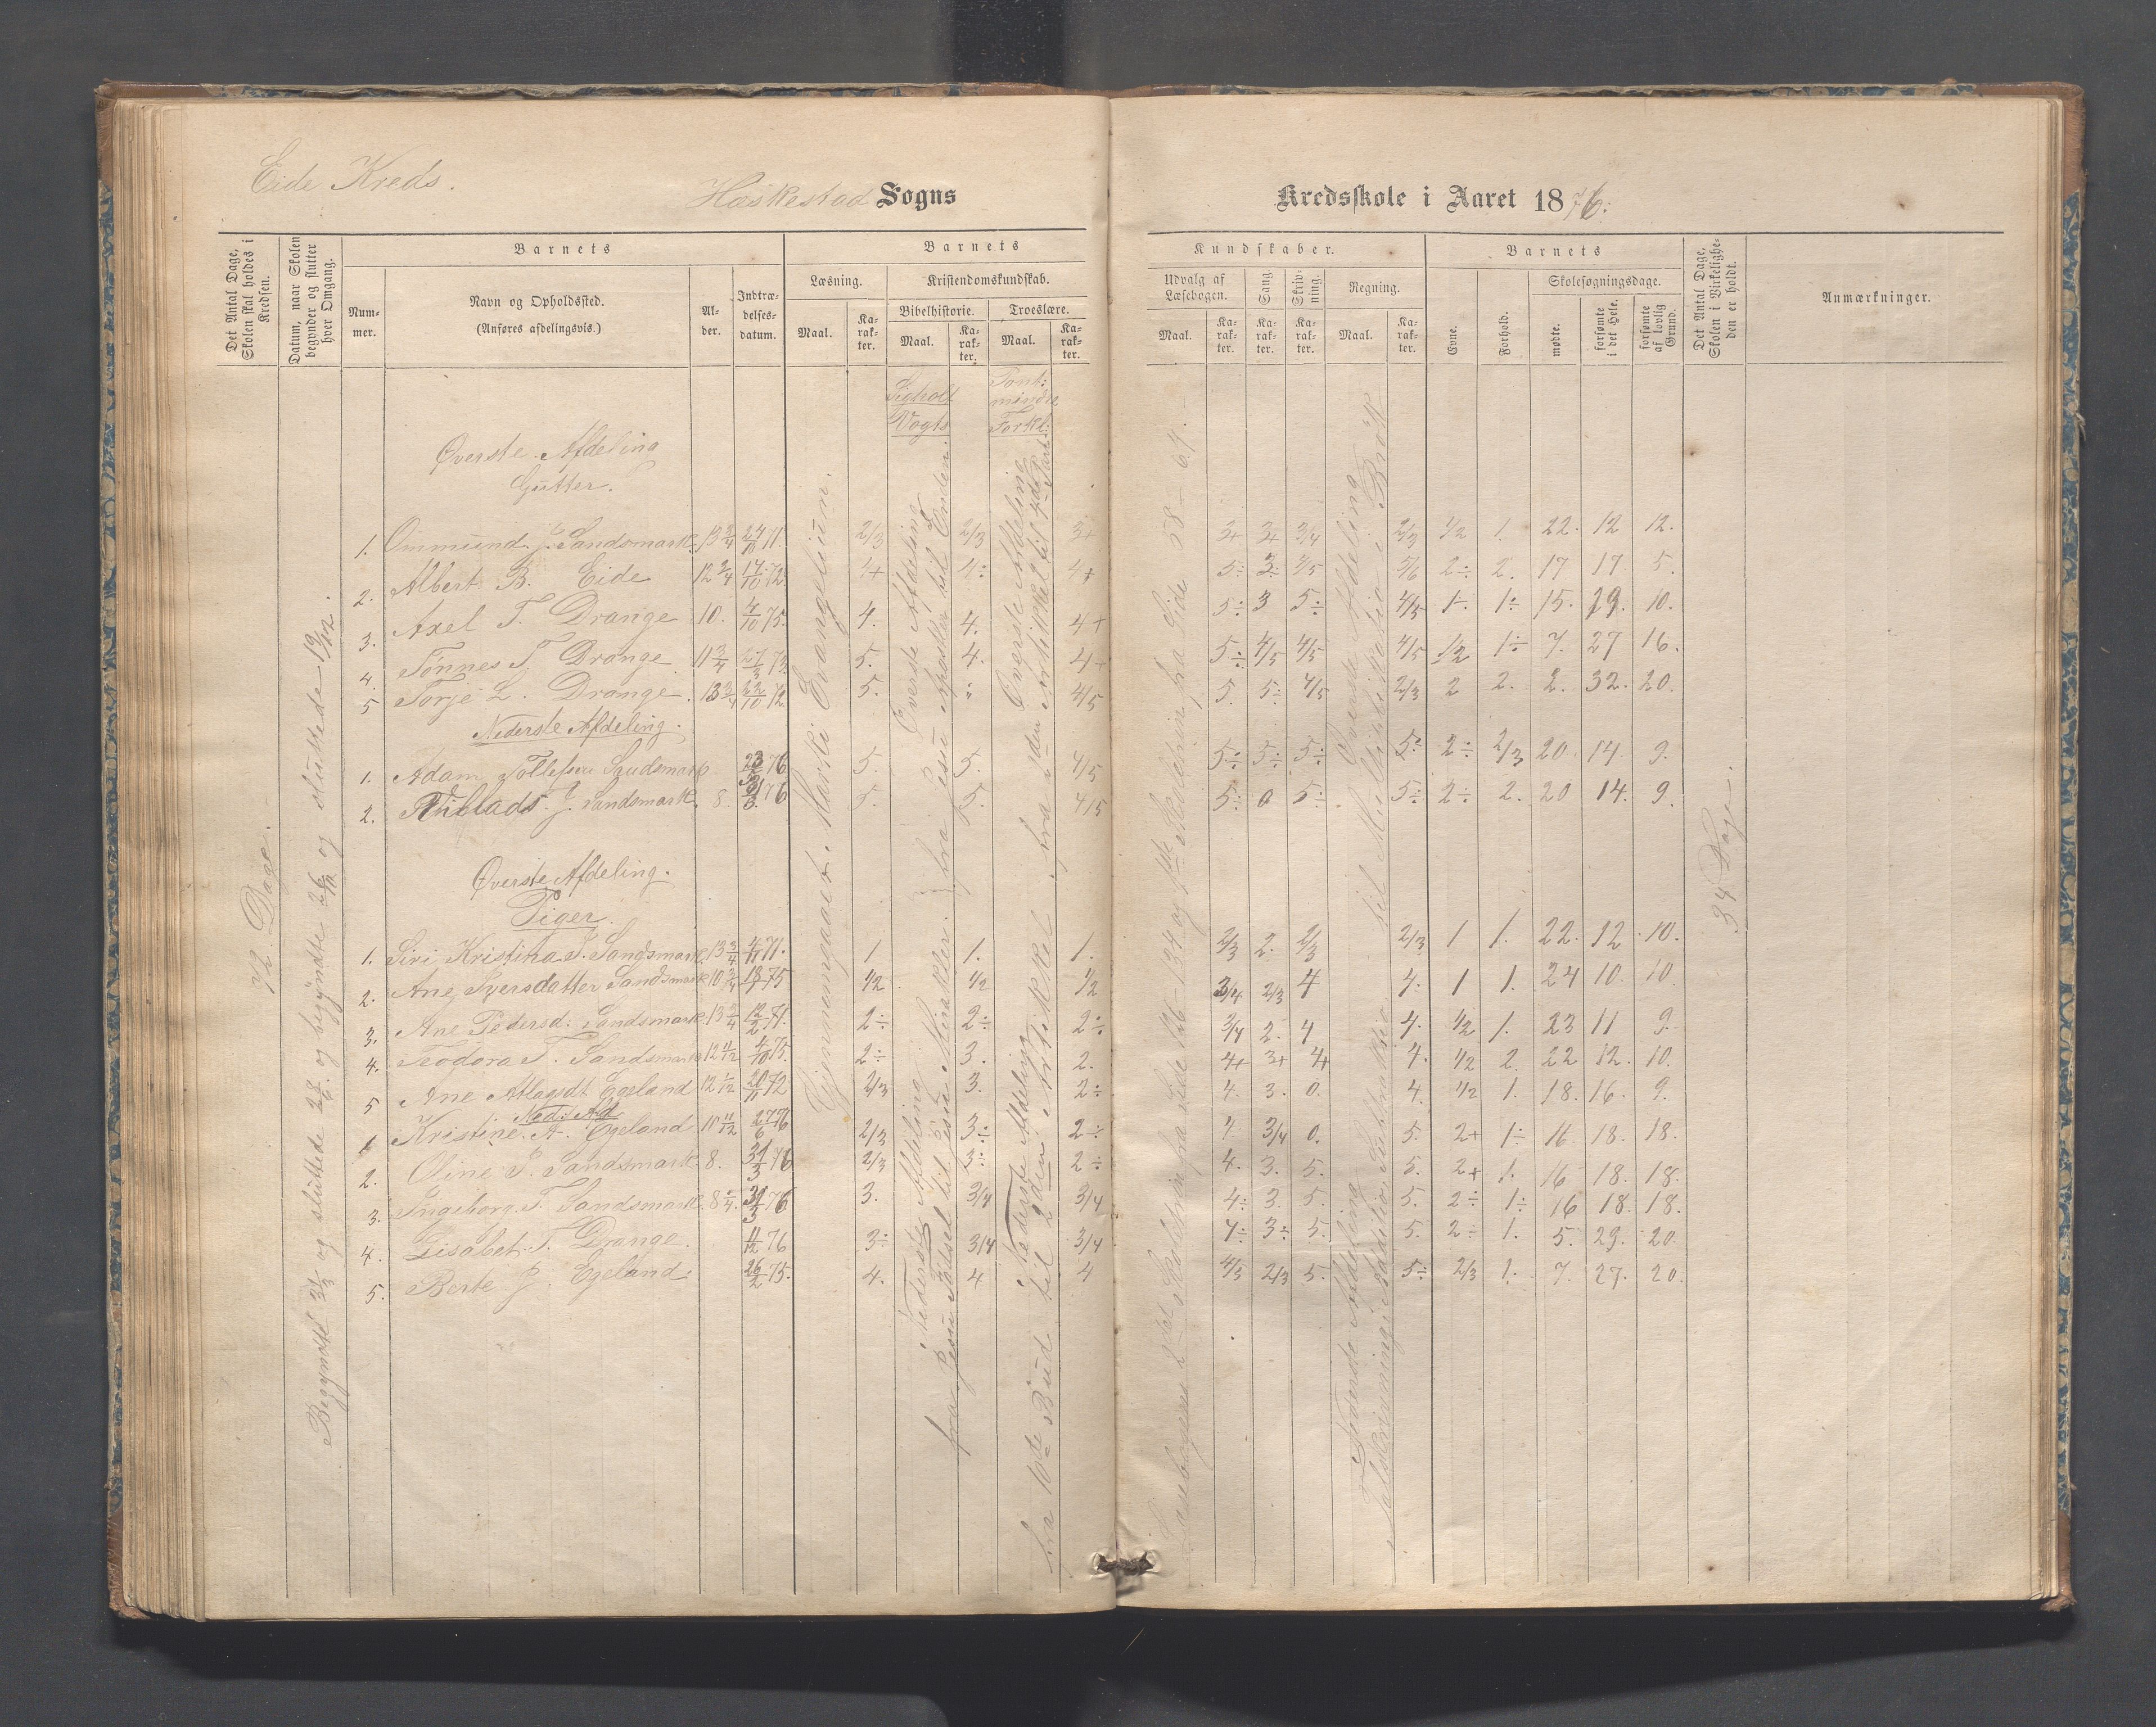 Eide Kreds.
Heskestad Sogns
Kredsskole i Aaret 1876.
Det Antal Dage, Skolen skal holdes i Kredsen.
Datum, naar Skolen begynder og slutter hver Omgang.
Barnets
Nummer.
Navn og Opholdssted.
(Anføres afdelingsvis.)
Alder.
Indtrædelsesdatum.
Barnets
Læsning.
Maal.
Karakter.
Kristendomskundskab.
Bibelhistorie.
Maal.
Karakter.
Troeslære.
Maal.
Karakter.
Kundskaber.
Udvalg af Læsebogen.
Maal.
Karakter.
Sang.
Karakter.
Skrivning.
Karakter.
Regning.
Maal.
Karakter.
Barnets
Evne.
Forhold.
Skolesøgningsdage.
mødte.
forsømte i det Hele.
forsømte af lovlig Grund.
Det Antal Dage, Skolen i Virkeligheden er holdt.
Anmærkninger.
Vogts
Pont:
mindre
Forkl:
72 Dage.
Begyndte 31/3 og sluttede 28/6 og begyndte 26/10 og sluttede 19/12.
Gjennemgaaet Marki Evangelium.
34 Dage.
Øverste Afdeling
Gutter.
1. Ommund J. Sandsmark 13 3/4 24/10 71. 2/3 2/3 3+ 3+ 3+ 3/4 2/3 1/2 1. 22. 12 12.
2. Albert B. Eide 12 3/4 17/10 72. 4+ 4÷ 4+ 5÷ 3÷ 4/5 5/6 2÷ 2. 17 17 5.
3. Axel T. Drange 10. 4/10 75. 4. 4. 4+ 5÷ 3 5÷ 4/5 1÷ 1÷ 15. 19. 10.
4. Tønnes T. Drange 11 3/4 27/3 73. 5. 4. 4+ 5÷ 4/5 4/5 4/5 1/2 1÷ 7. 27 16.
5 Torje L. Drange. 13 3/4 22/10 72. 5. 4/5 5. 5÷ 4/5 2/3 2 2. 2. 32. 20.
Nederste Afdeling.
1. Adam Tollefsen Sandsmark 76. 5. 5. 4/5 5÷ 5÷ 5÷ 5÷ 2÷ 2/3 20. 14. 9.
2. J. Sandsmark 8. 76 5. 5. 4/5 5÷ 0 5÷ 5÷ 2÷ 2. 20 14. 9.
Øverste Afdeling.
Piger.
1. Siri Kristina J. Sandsmark 13 3/4 4/11 71. 1 1. 1. 2/3 2. 2/3 2/3 1 1. 22. 12 10.
2. Ane Syersdatter Sandsmark 10 3/4 75 1/2 1/2 1/2 3/4 2/3 4 4. 1 1. 24 10. 10.
3. Ane Pedersd: Sandsmark 13 3/4 12/2 71. 2÷ 2÷ 2÷ 3/4 2. 4 4. 1/2 1. 23 11 9.
4. Teodora T. Sandsmark 12 11/12 4/10 75. 2÷ 3. 2. 4+ 3+ 4+ 4. 1/2 2. 22 12. 10.
5 Ane Atlagsdt Egeland 12 1/12 20/11 72 2/3 3. 2÷ 4. 3. 0. 4. 1/2 1. 18. 16. 9.
Ned: Afd
1 Kristine A. Egeland 10 11/12 27/6 76 2/3 3÷ 2÷ 4. 3/4 0. 5. 2+ 1÷ 16 18. 18.
2. Oline P. Sandsmark 8. 31/3 76 2/3 3÷ 2÷ 4. 3. 5. 5. 2+ 1. 16 18. 18.
3. Ingeborg T. Sandsmark. 8 1/4. 31/3 76 3. 3/4 3/4 4÷ 3. 5. 5. 2÷ 1÷ 16 18. 18.
4. Lisabet T. Drange. 11/12 76 3÷ 3/4 3/4 4÷ 3÷ 5. 5. 2÷ 1. 5. 29. 20.
5. Berte J. Egeland 26/2 75. 4. 4 4 4/5 2/3 5. 5÷ 2/3 1. 7. 27. 20.
Øverste Afdeling
Nederste Afdeling
fra Jesu Daabsel til Jesu Mirakler.
Øverste Afdeling
fra 2den Artikkel til 4de Part
Nederste Afdeling
fra 10de Bud til 2den Artikkel
Læsebogens 2det Skoletrin fra Side 126-134 og 1ste Skoletrin fra Side 58-64.
Øverste Afdeling
til Multiplikatio i Brøk
Nederste Afdeling